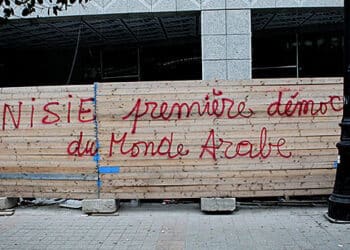 NISIE première démoc
du Monde Arabe